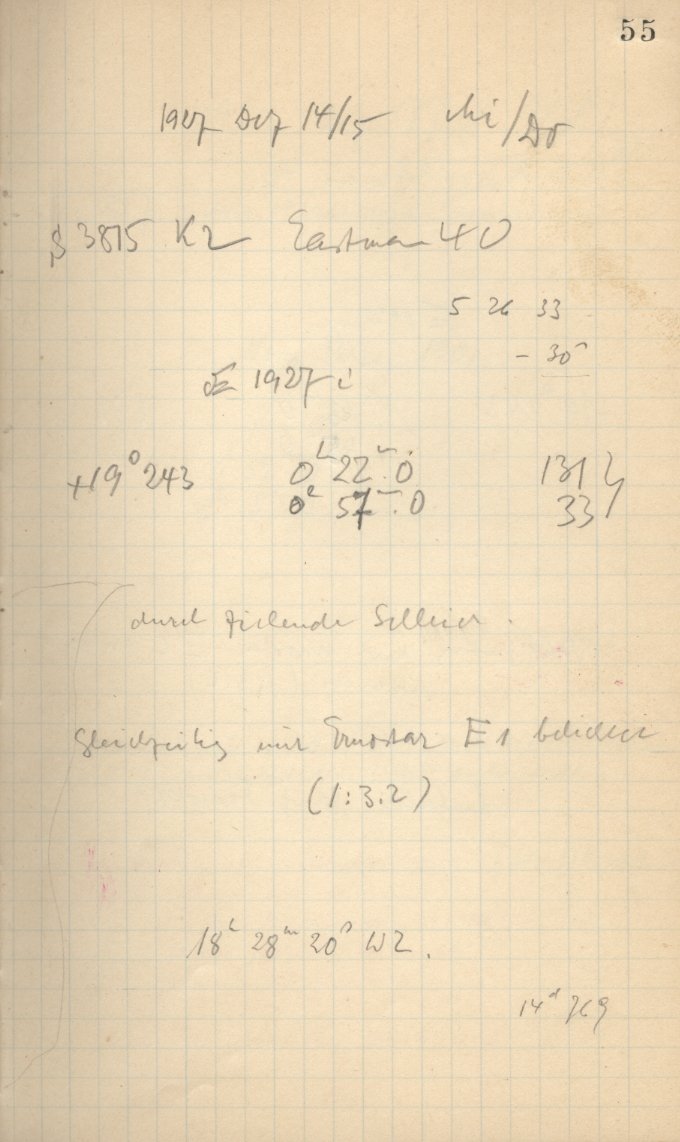 55
1927 Dez 14/15 Mi/Do
3815 K2 Eastman 40
5 26 33
- 30
1927 i
+19° 243 0ʰ 22ᵐ.0 131
0ʰ 57ᵐ.0 33
durch ziehende Schleier.
Gleichzeitig mit Ernostar E1 belichtet
(1:3.2)
18ʰ 28ᵐ 20ˢ WZ.
14ᵈ 769